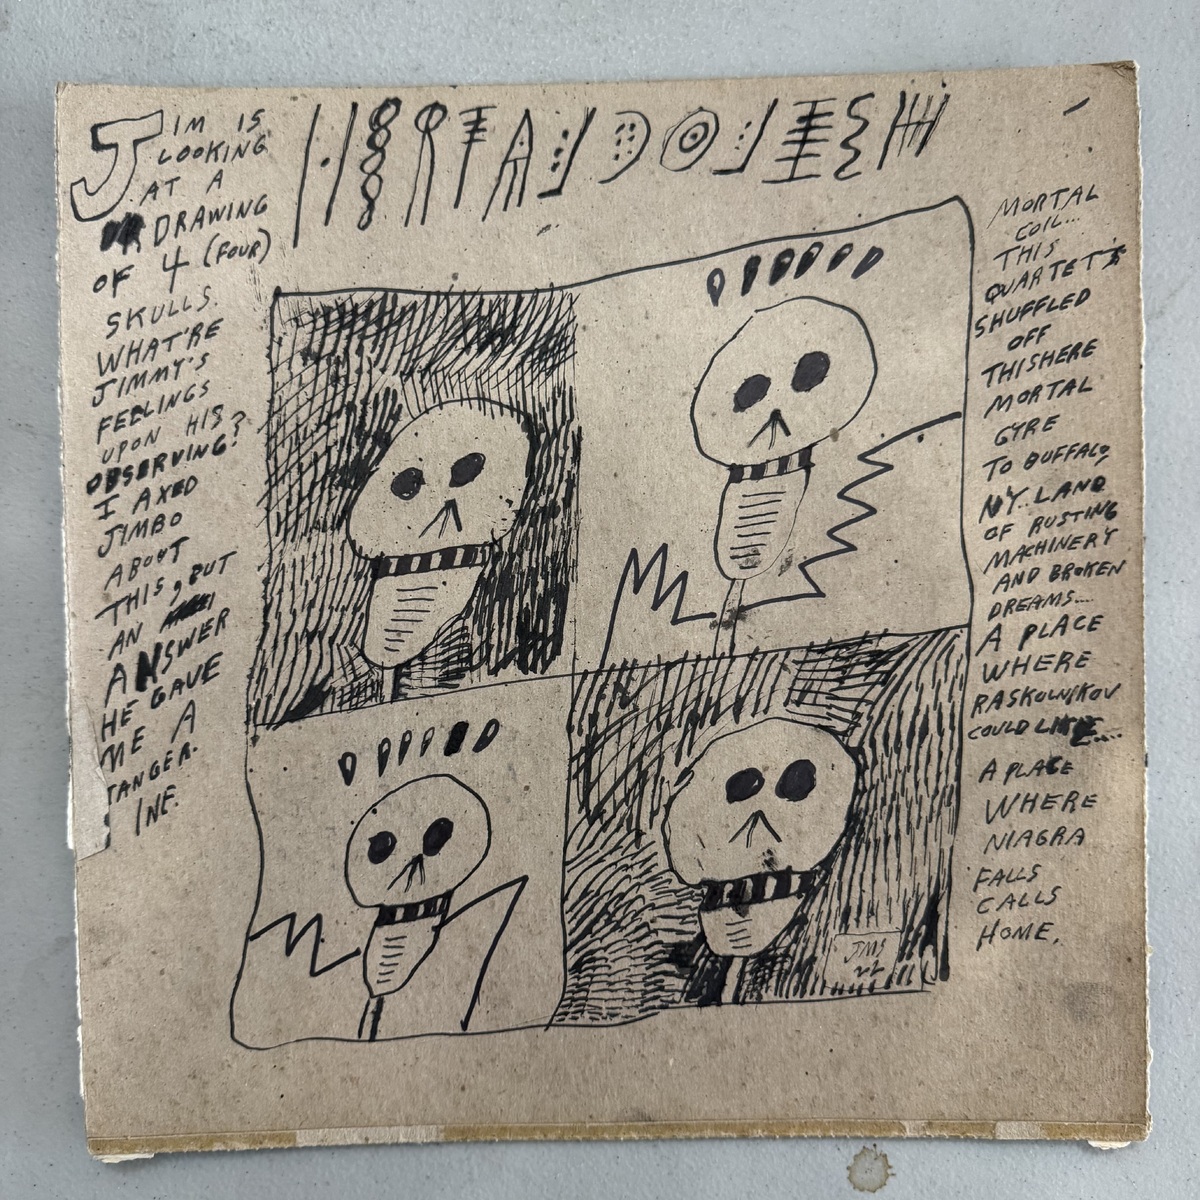 JIM IS
LOOKING
AT A
DRAWING
OF 4 (FOUR)
SKULLS.
WHAT'RE
JIMMY'S
FEELINGS
UPON HIS
OBSERVING?
I AXED
JIMBO
ABOUT
THIS, BUT
AN
ANSWER
HE GAVE
ME A
TANGER-
INE.
MORTAL
COIL...
THIS
QUARTET'S
SHUFFLED
OFF
THISHERE
MORTAL
GYRE
TO BUFFALO,
NY. LAND
OF RUSTING
MACHINERY
AND BROKEN
DREAMS....
A PLACE
WHERE
RASKOLNIKOV
COULD
A PLACE
WHERE
NIAGRA
FALLS
CALLS
HOME.
JMS
22